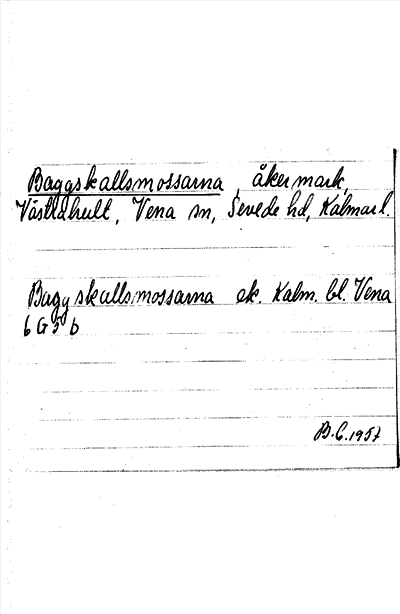 Baggskallsmossarna, åkermark,
Västrahult, Vena sn, Sevede hd, Kalmar l.
Baggskallsmossarna ek. Kalm. bl. Vena
6 G 5 b
B.G. 1957